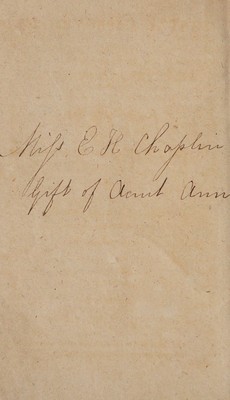 Miss E H Chaplin
Gift of Aunt Ann